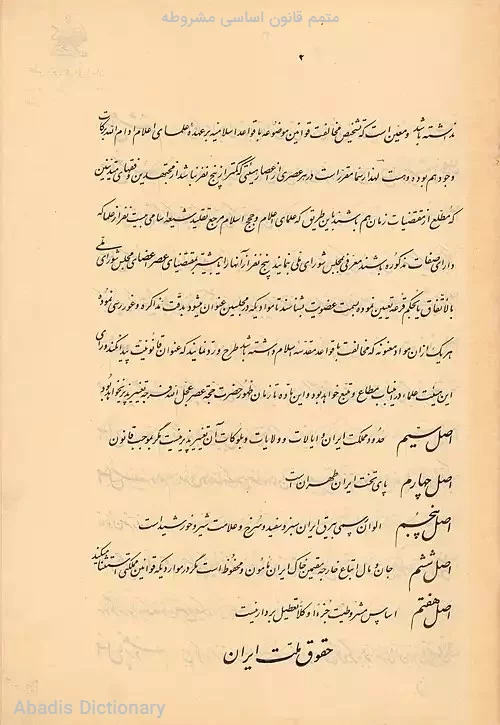 متمم قانون اساسی مشروطه
۲
نداشته باشد و معین است که تشخیص مخالفت قوانین موضوعه با قواعد اسلامیه بر عهده علمای اعلام ادام الله برکات
وجودهم بوده و هست لهذا رسما مقرر است در هر عصری از اعصار هیئتی که کمتر از پنج نفر نباشد از مجتهدین و فقهای متدینین
که مطلع از مقتضیات زمان هم باشند باین طریق که علمای اعلام و حجج اسلام مرجع تقلید شیعه اسامی بیست نفر از علما که
دارای صفات مذکوره باشند معرفی بمجلس شورای ملی بنمایند پنج نفر از آنها را یا بیشتر بمقتضای عصر اعضای مجلس شورای ملی
بالاتفاق یا بحکم قرعه تعیین نموده بسمت عضویت بشناسند تا موادیکه در مجلسین عنوان میشود بدقت مذاکره و غوررسی نموده
هر یک از ان مواد معنونه که مخالفت با قواعد مقدسه اسلام داشته باشد طرح و رد نمایند که عنوان قانونیت پیدا نکند و رای
این هیئت علماء در اینباب مطاع و متبع خواهد بود و این ماده تا زمان ظهور حضرت حجة عصر عجل الله فرجه تغییر پذیر نخواهد بود
اصل سیم حدود مملکت ایران و ایالات و ولایات و بلوکات آن تغییر پذیر نیست مگر بموجب قانون
اصل چهارم پای تخت ایران طهران است
اصل پنجم الوان رسمی بیرق ایران سبز و سفید و سرخ و علامت شیر و خورشید است
اصل ششم جان و مال اتباع خارجه مقیمین خاک ایران مامون و محفوظ است مگر در مواردیکه قوانین مملکتی استثنا میکند
اصل هفتم اساس مشروطیت جزء و کلا تعطیل بردار نیست
حقوق ملت ایران
Abadis Dictionary